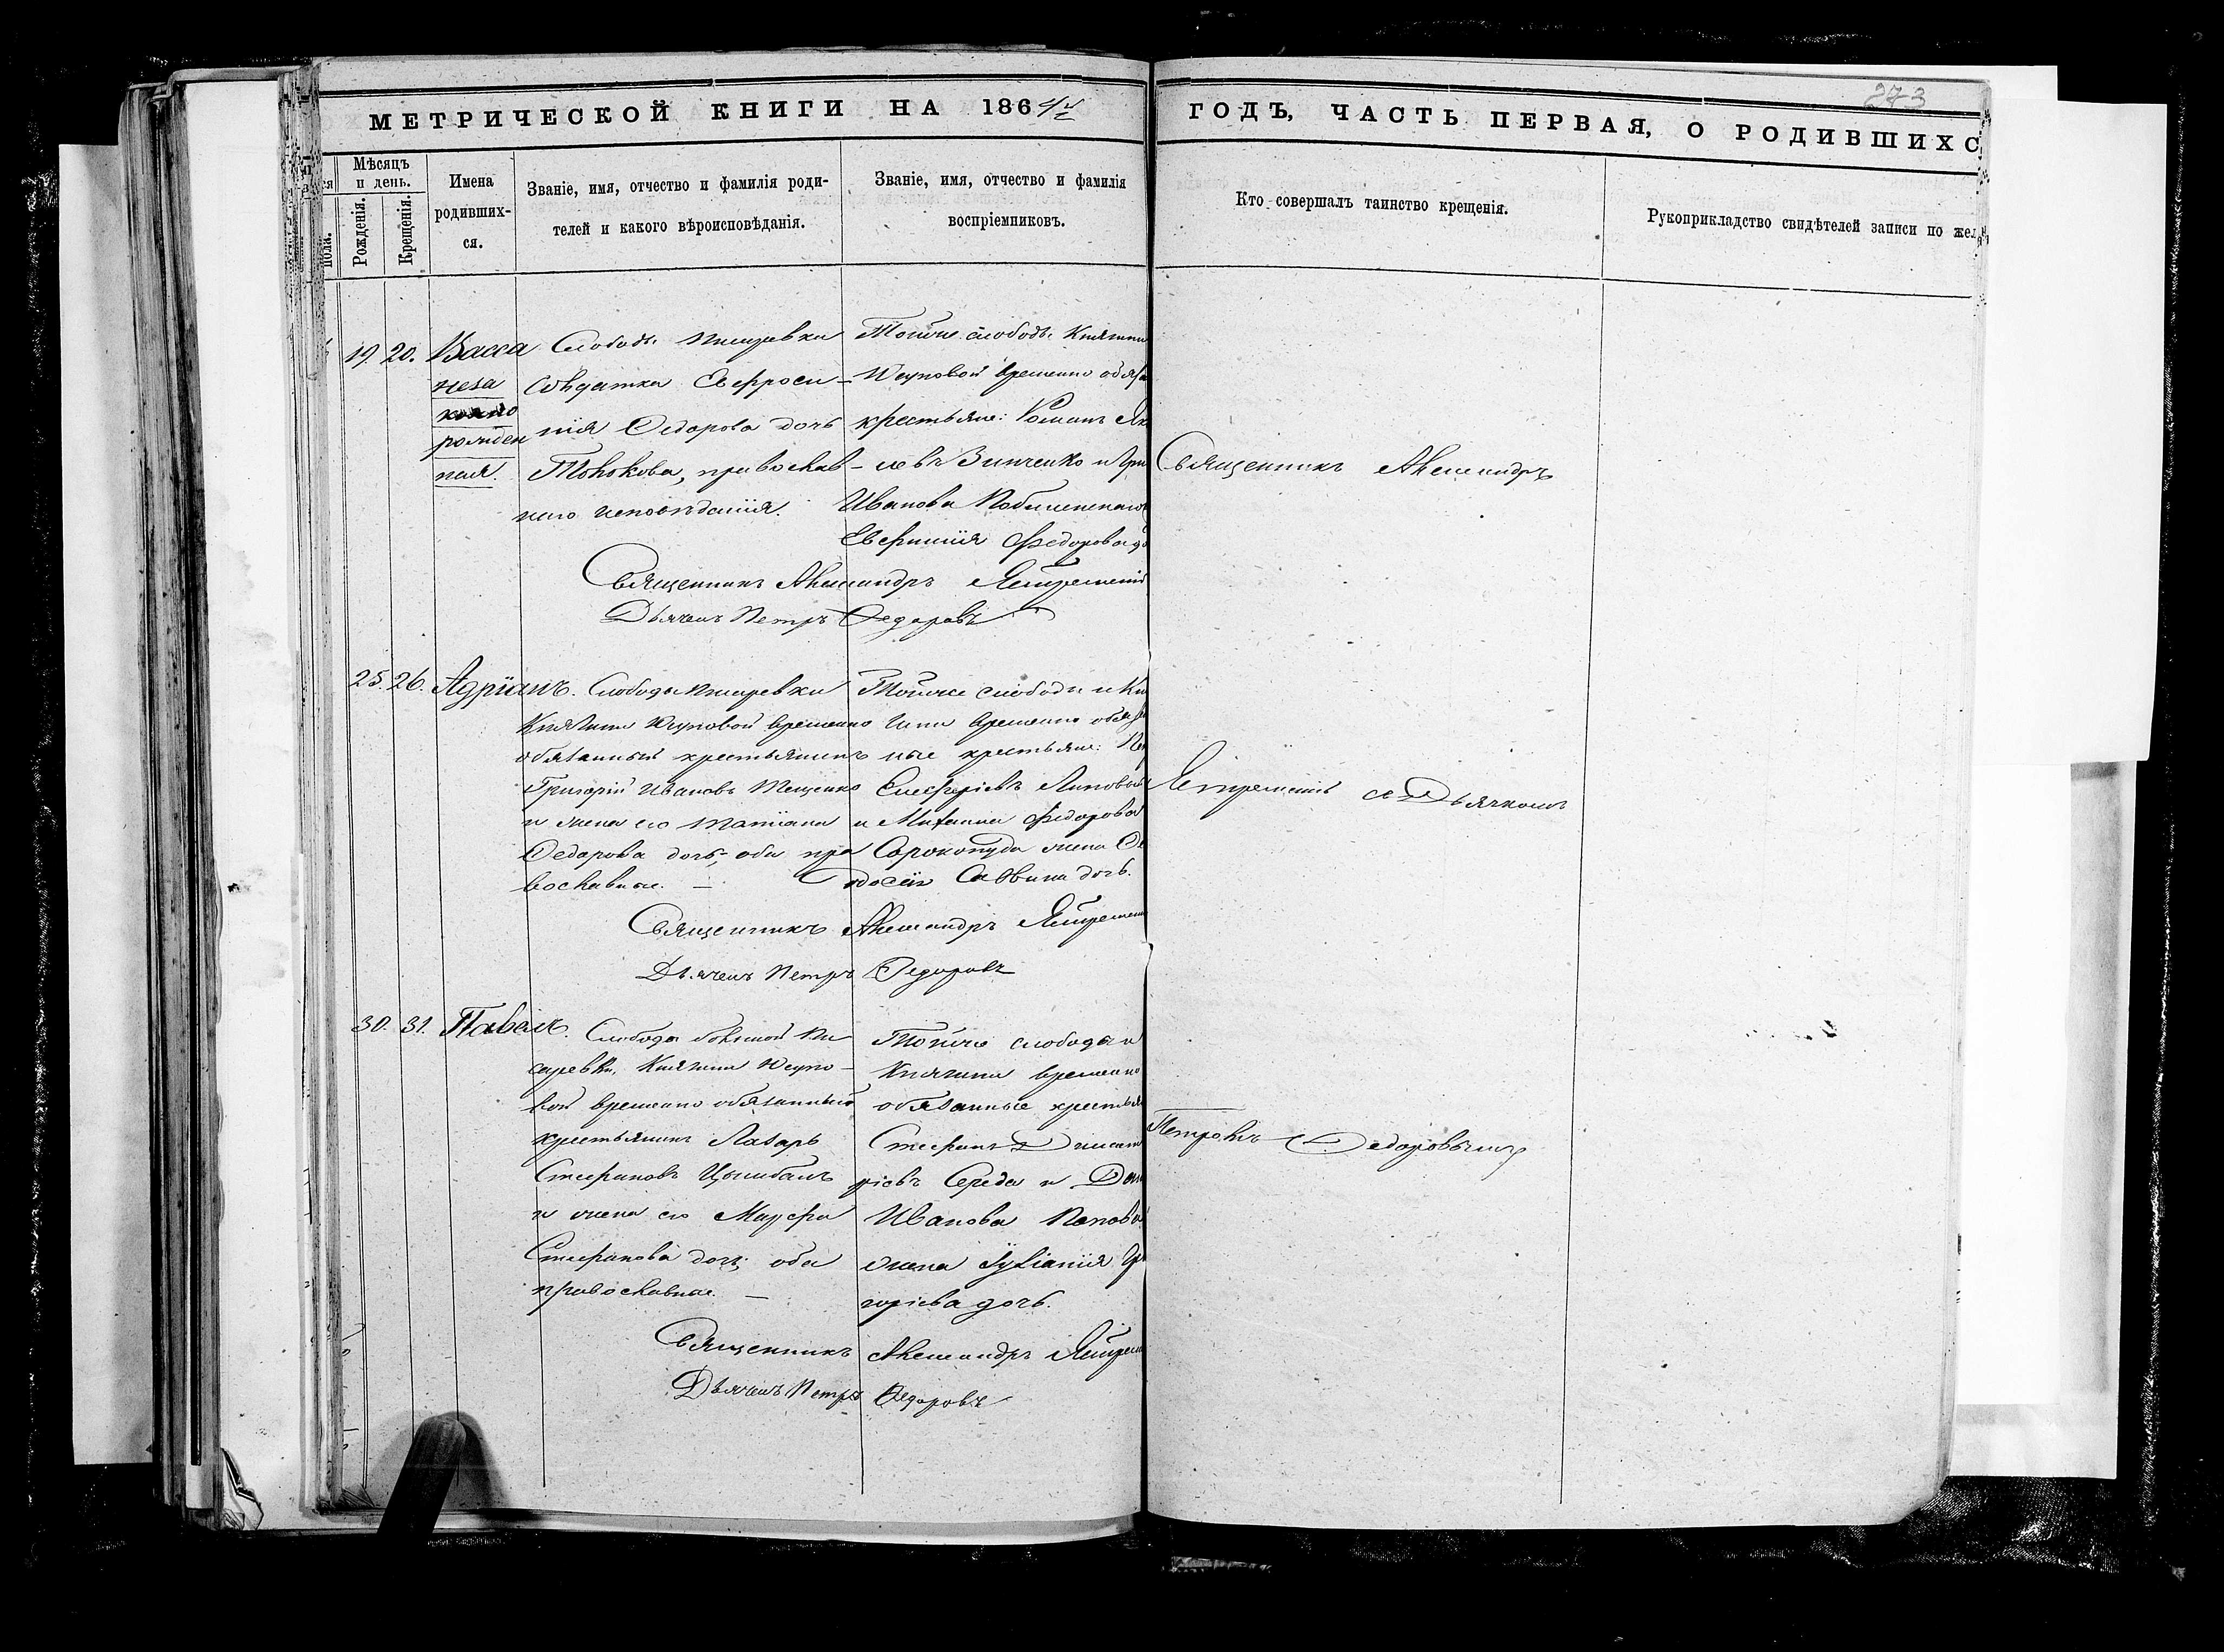 273
МЕТРИЧЕСКОЙ КНИГИ НА 186
ГОДЪ, ЧАСТЬ ПЕРВАЯ, О РОДИВШИХС
Мѣсяцъ и день.
Рожденія.
Крещенія.
Имена родивших-ся.
Званіе, имя, отчество и фамилія роди-
телей и какого вѣроисповѣданія.
Званіе, имя, отчество и фамилія
воспріемниковъ.
Кто совершалъ таинство крещенія.
Рукоприкладство свидѣтелей записи по жел
19. 20. Васса
неза
конно
рожден
ная.
Слободы Писаревки
солдатка Евфроси-
нія Ѳедорова дочь
православ-
наго исповѣданія.
Тойже слободы Княгини
Юсуповой временно обяза
крестьяне: Романъ Як
левъ Зинченко и Гри
Иванова
Ѳедорова до
Священникъ Александръ Ястремскій
Дьячекъ Петръ Ѳедоровъ
25. 26. Адріанъ.
Слободы Писаревки
Княгини Юсуповой временно
обязанный крестьянинъ
Григорій Ивановъ Тещенко
и жена его Татіана
Ѳедорова дочь, оба пра
вославные. —
Тойже слободы и Кня
гини временно обязан
ные крестьяне:
и Михаила Ѳедорова
Сорокопуда жена Ѳе
одосія Саввина дочь.
Священникъ Александръ Ястремск
Дьячекъ Петръ Ѳедоровъ
30. 31. Павелъ.
Слободы большой Пи
саревки, Княгини Юсупо-
вой временно обязанный
крестьянинъ Лазарь
Стефановъ Цымбалъ
и жена его Марфа
Стефанова дочь, оба
православные. —
Тойже слободы и
Княгини временно
обязанные крестья
Стефанъ Димит
ріевъ Середа и
Иванова Попова
жена Іуліанія Гри
горіева дочь.
Священникъ Александръ Ястрем
Дьячекъ Петръ Ѳедоровъ
Священникъ Александръ
Ястремскій съ Дьячкомъ
Петромъ Ѳедоровымъ